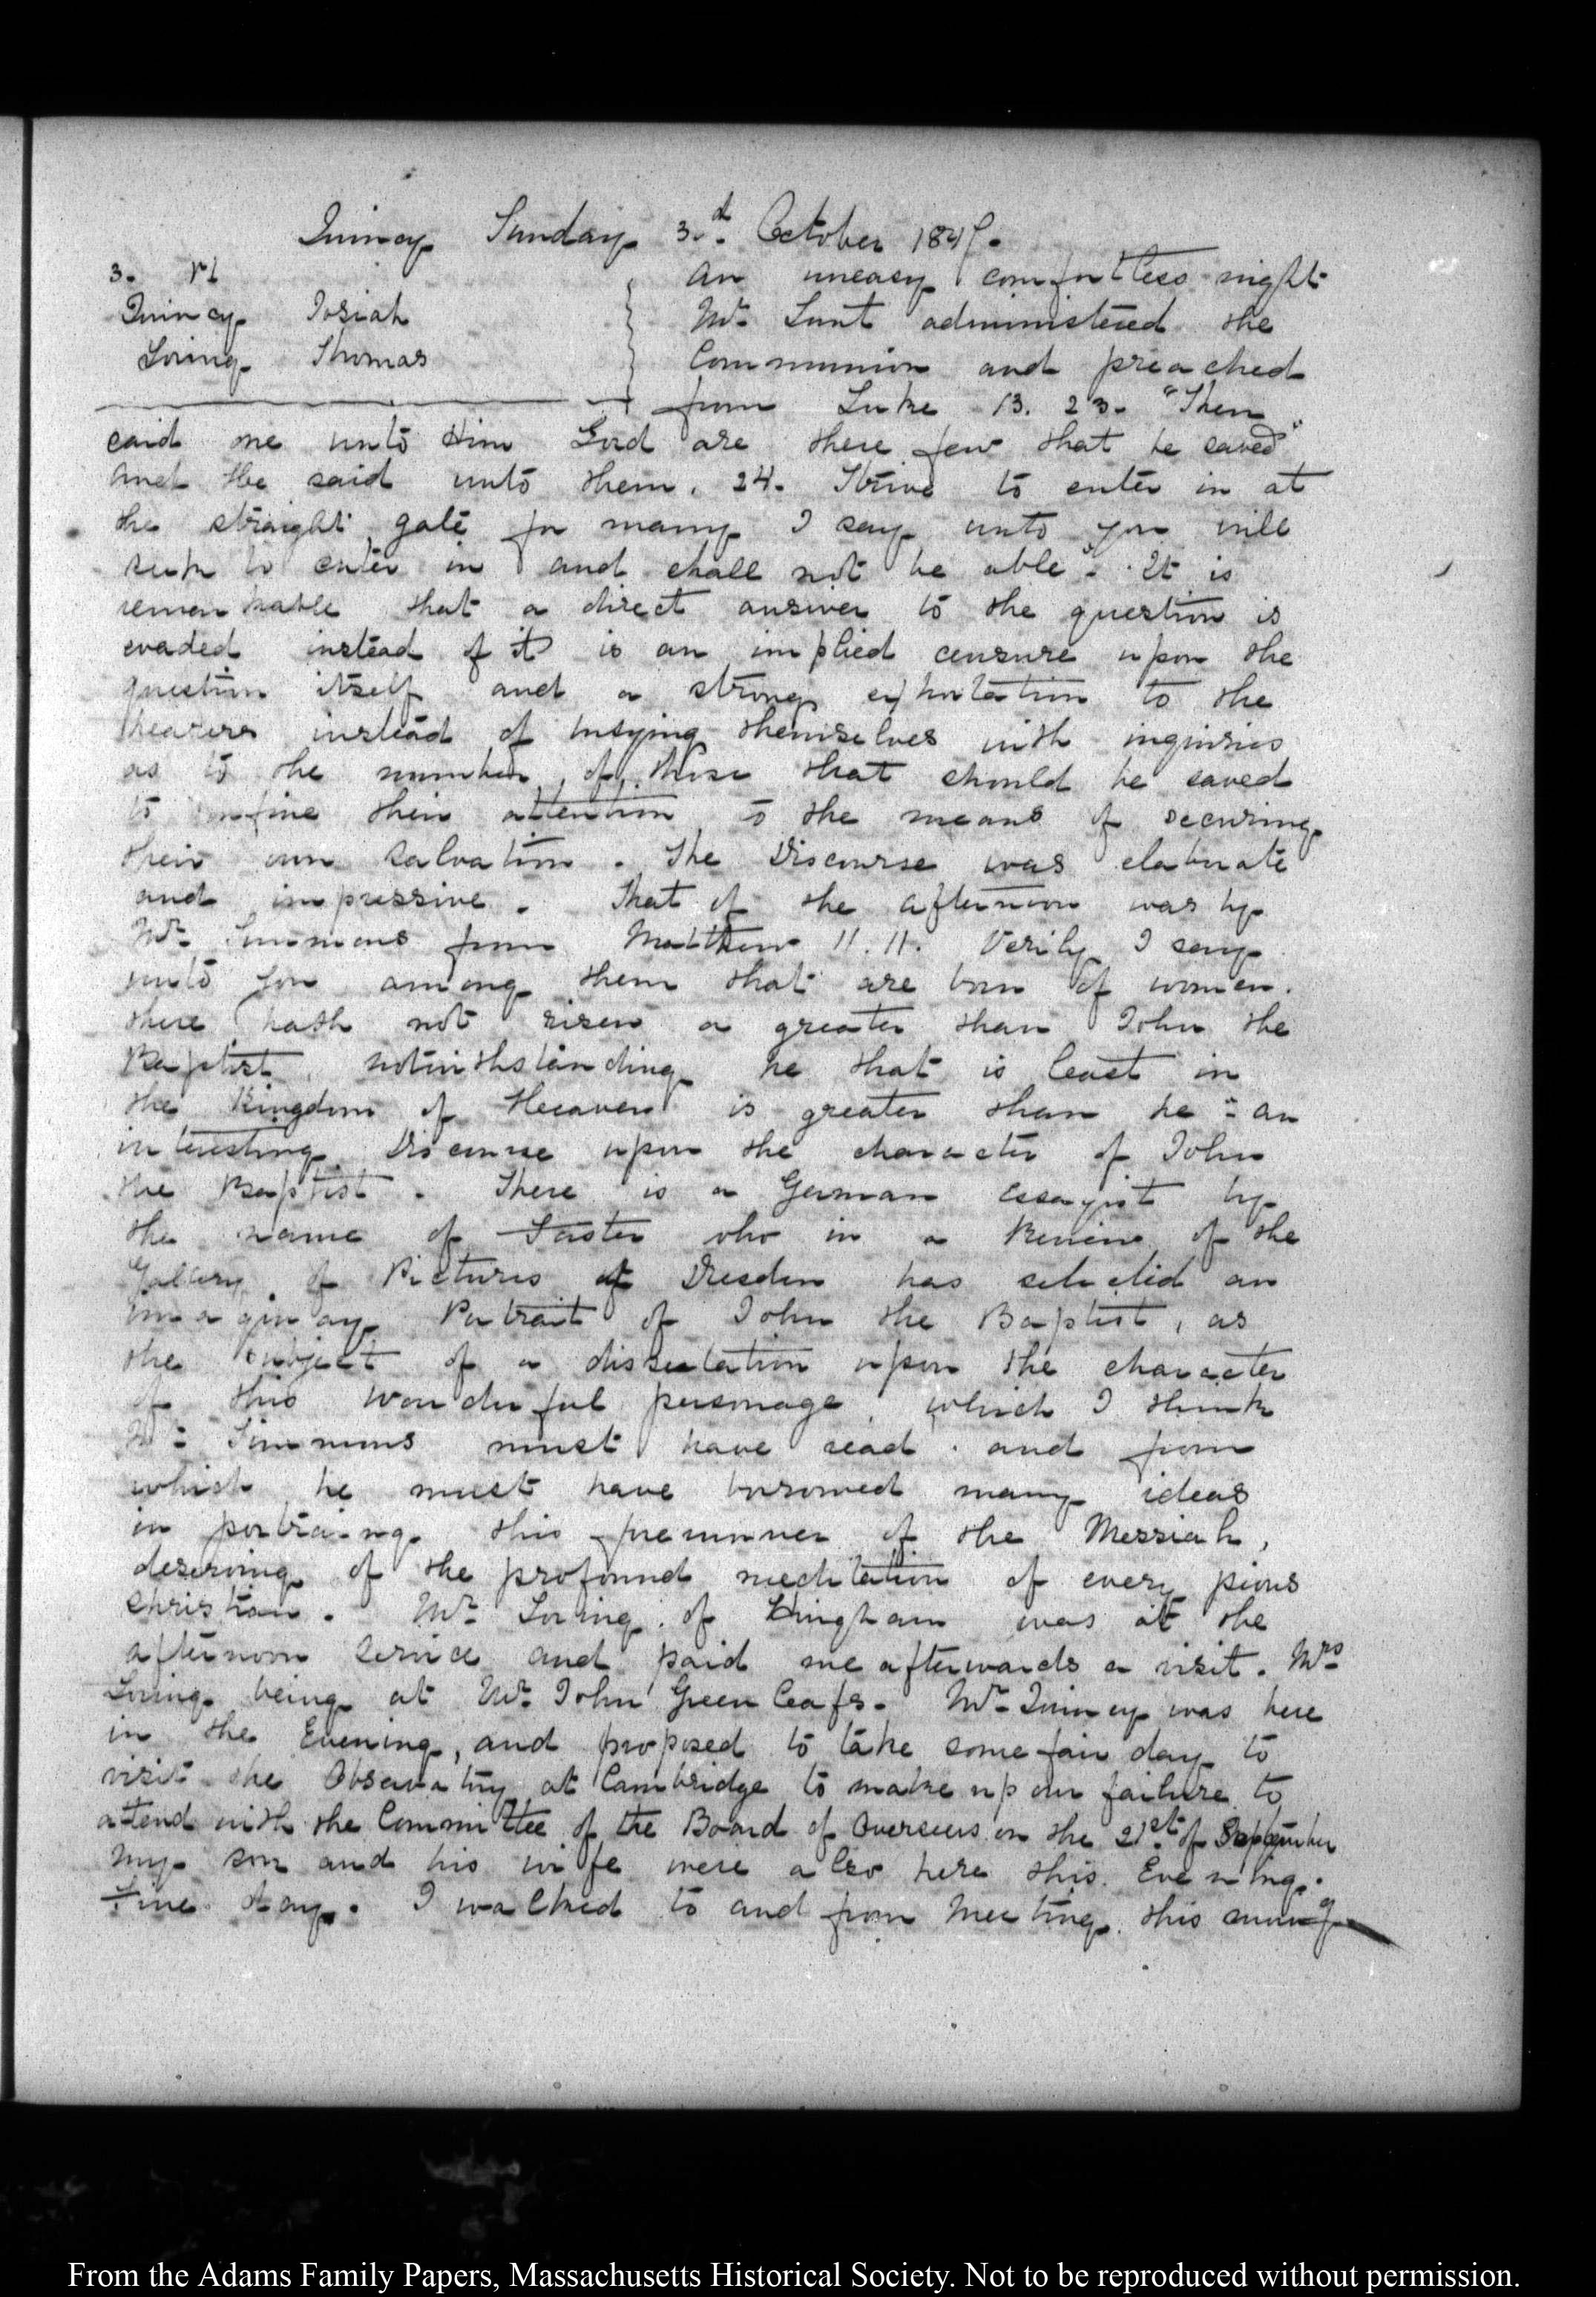 Quincy Sunday 3.d October 1847.
3. VI
Quincy Josiah
Loring Thomas
An uneasy comfortless night
Mr. Lunt administered the
Communion and preached
from Luke 13. 23. "Then
said one unto Him Lord are there few that be saved"
And He said unto them. 24. Strive to enter in at
the straight gate for many I say unto you will
seek to enter in and shall not be able". It is
remarkable that a direct answer to the question is
evaded instead of it is an implied censure upon the
question itself and a strong exhortation to the
hearers instead of busying themselves with inquiries
as to the number of those that should be saved
to confine their attention to the means of securing
their own salvation. The Discourse was elaborate
and impressive. That of the afternoon was by
Mr. Simmons from Matthew 11. 11. Verily I say
unto you among them that are born of women.
there hath not risen a greater than John the
Baptist, notwithstanding he that is least in
the Kingdom of Heaven is greater than he" an
interesting Discourse upon the character of John
the Baptist. There is a German essayist by
the name of who in a Review of the
Gallery of Pictures at Dresden has selected an
imaginary Portrait of John the Baptist, as
the subject of a dissertation upon the character
of this wonderful personage, which I think
Mr. Simmons must have read. and from
which he must have borrowed many ideas
in portraing this forerunner of the Messiah,
deserving of the profound meditation of every pious
Christian. Mr. Loring of Hingham was at the
afternoon service and paid me afterwards a visit. Mrs
Loring being at Mr. John Greenleafs. Mr. Quincy was here
in the Evening, and proposed to take some fair day to
visit the Observatory at Cambridge to make up our failure to
attend with the Committee of the Board of Overseers on the 21st. of September
My son and his wife were also here this Evening.
Fine day. I walked to and from Meeting this morng
From the Adams Family Papers, Massachusetts Historical Society. Not to be reproduced without permission.